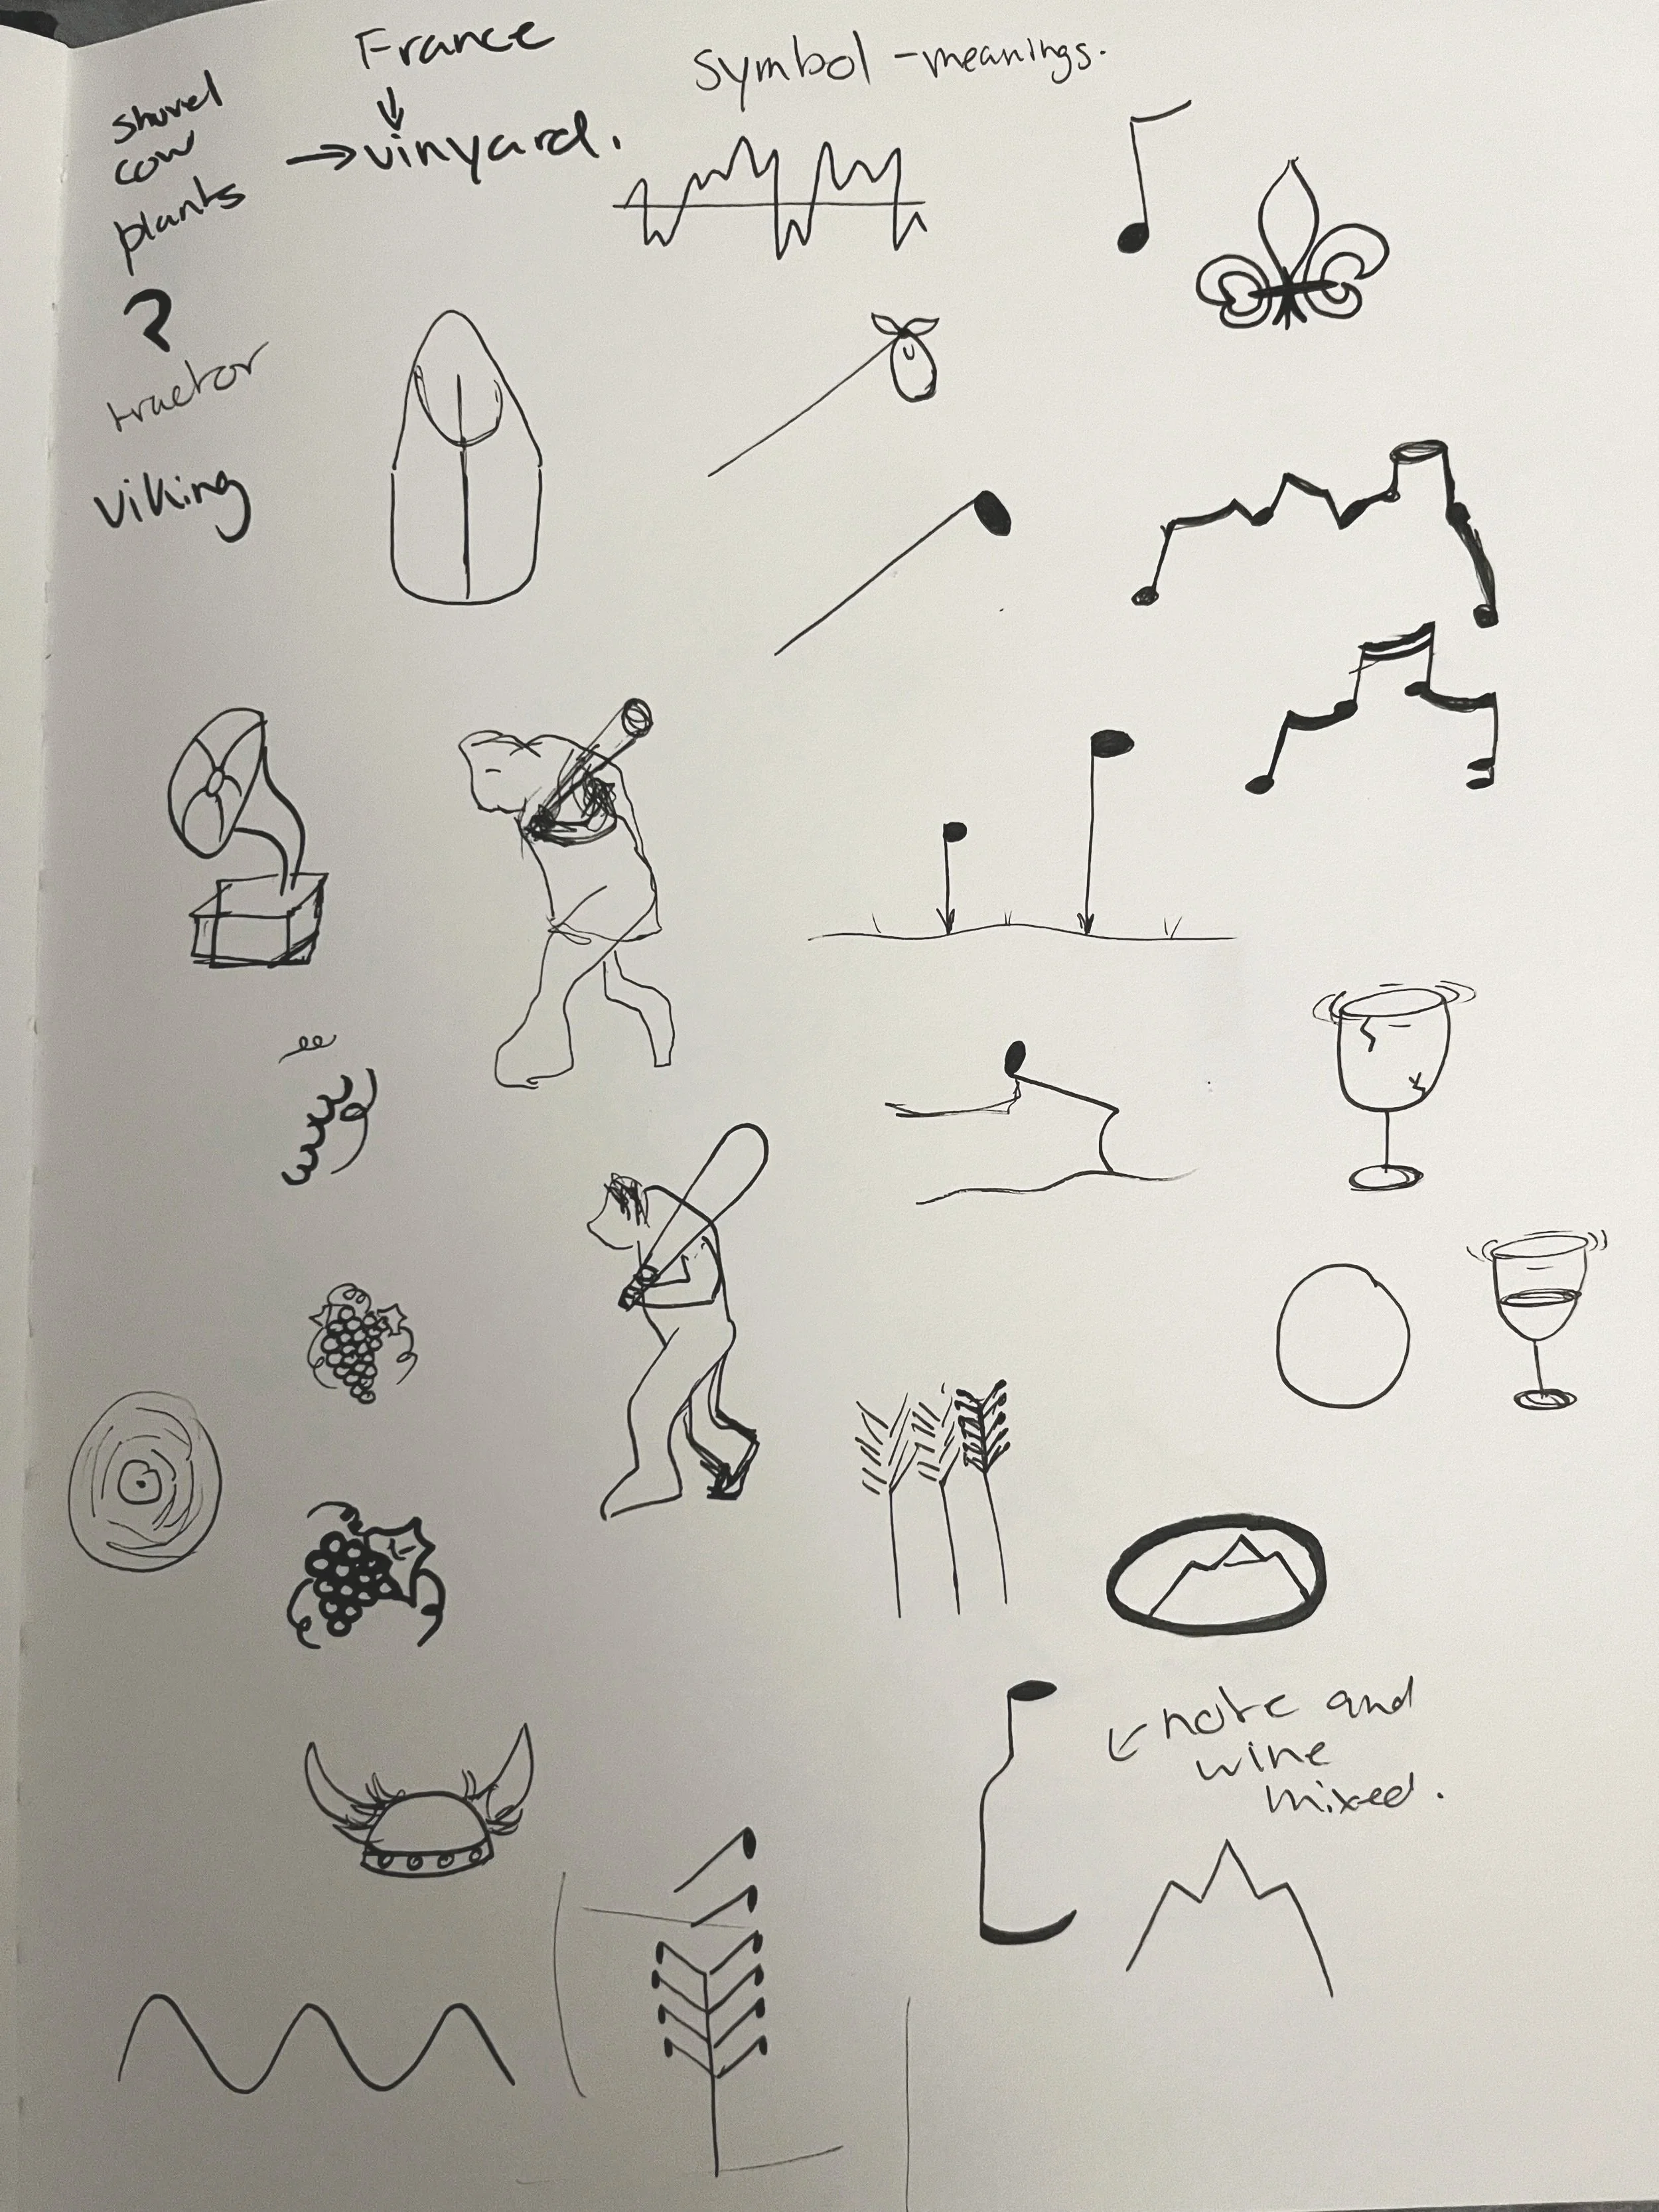 France
symbol - meanings.
shuvel
cow
plants
→vinyard.
?
tractor
viking
note and
wine
mixed.